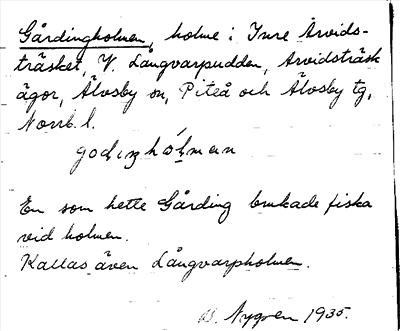 Gårdingholmen, holme i Inre Arvids-
träsket, V. Långvarpudden, Arvidsträsk
ägor, Älvsby sn, Piteå och Älvsby tg,
Norrb. l.
En som hette Gårding brukade fiska
vid holmen.
Kallas även Långvarpholmen.
Nygren 1935.